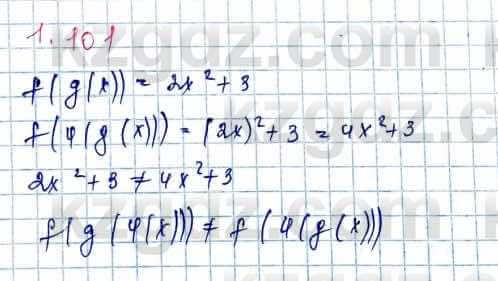 1.101
f(g(x)) = 2x²+3
f(φ(g(x))) = (2x)²+3 = 4x²+3
2x²+3 ≠ 4x²+3
f(g(φ(x))) ≠ f(φ(g(x)))